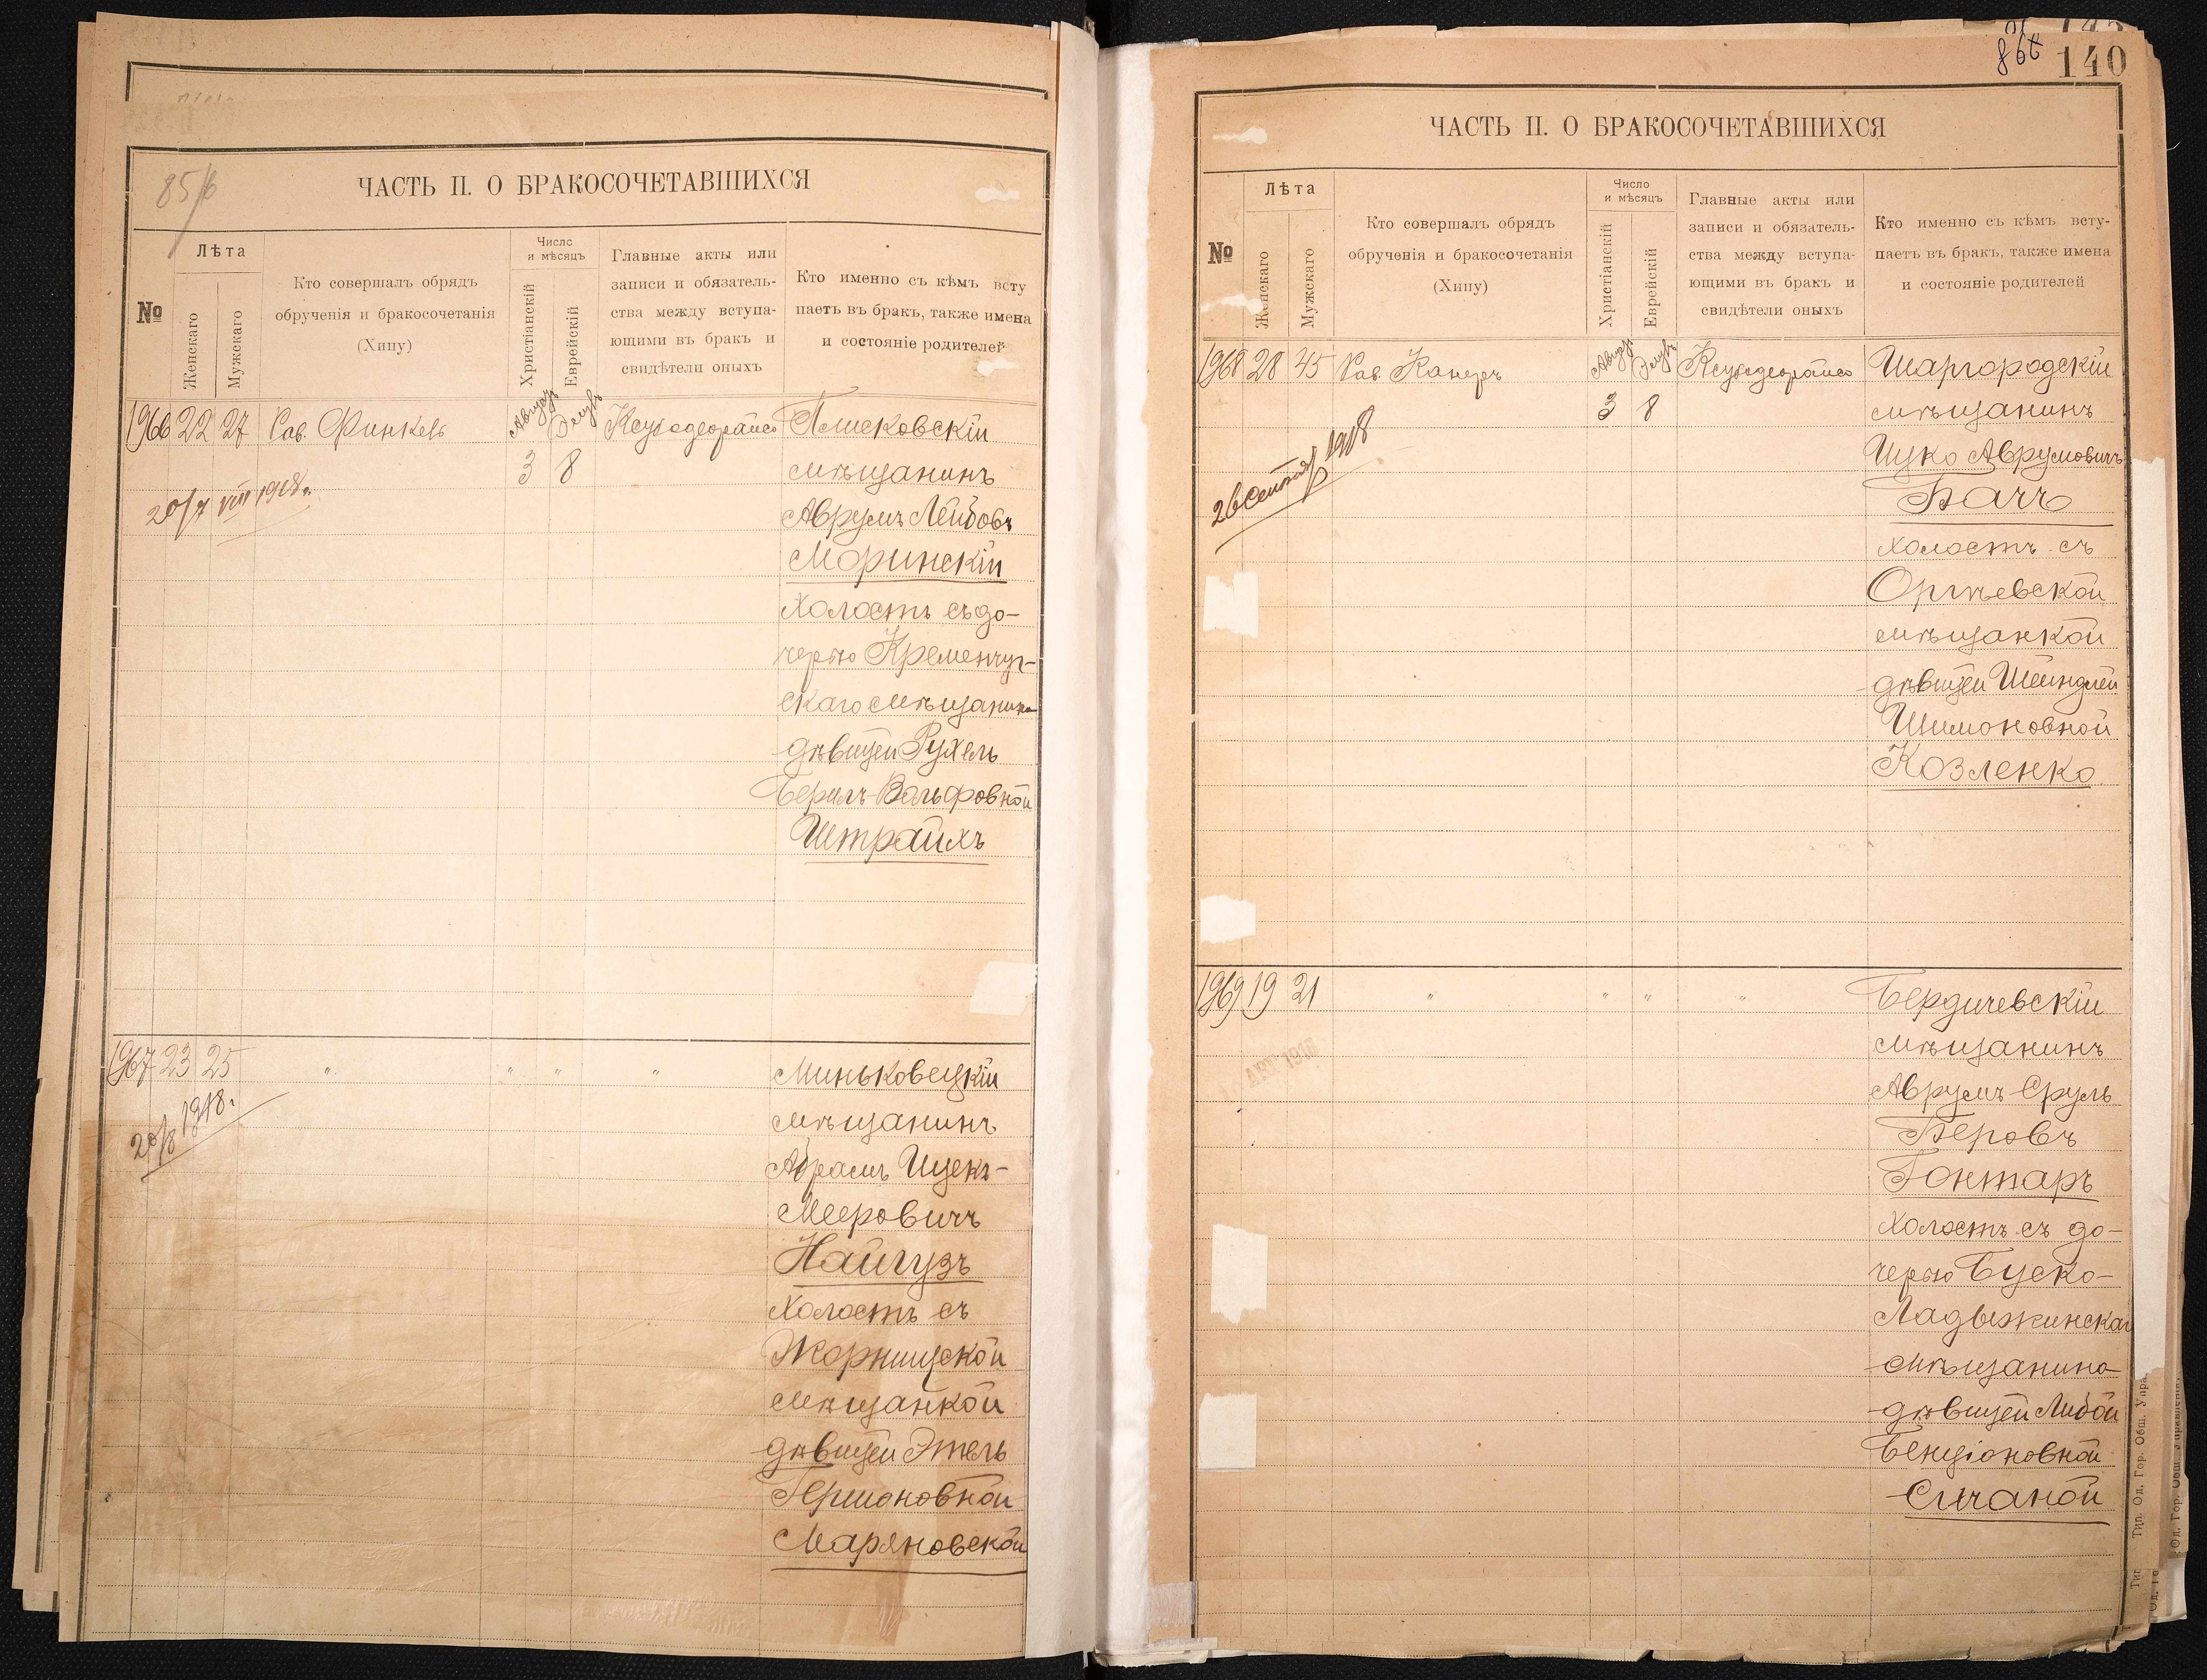 85/б
ЧАСТЬ II. О БРАКОСОЧЕТАВШИХСЯ
№
Лѣта
Женскаго
Мужскаго
Кто совершалъ обрядъ
обрученія и бракосочетанія
(Хипу)
Число
и мѣсяцъ
Христіанскій
Еврейскій
Главные акты или
записи и обязатель-
ства между вступа-
ющими въ бракъ и
свидѣтели оныхъ
Кто именно съ кѣмъ всту
паетъ въ бракъ, также имена
и состояніе родителей
1966 22 27 Рав. Финкель Августъ Элулъ Плисковскій
3 8 мѣщанинъ
20/7 VIII 1918 г.
Аврумъ Лейбовъ
Моринскій
холостъ съ до-
черью Кременчуг-
скаго мѣщанина
дѣвицей Рухель
Берилъ-Вольфовной
Штрайхъ
1967 23 25 " " " " Миньковецкій
20/8 1918 г.
мѣщанинъ
Абрамъ Ицекъ-
Меровичъ
Найгузъ
холостъ съ
Жорнищской
мѣщанкой
дѣвицей Этель
Гершоновной
Маряновской
140
ЧАСТЬ II. О БРАКОСОЧЕТАВШИХСЯ
№
Лѣта
Женскаго
Мужскаго
Кто совершалъ обрядъ
обрученія и бракосочетанія
(Хипу)
Число
и мѣсяцъ
Христіанскій
Еврейскій
Главные акты или
записи и обязатель-
ства между вступа-
ющими въ бракъ и
свидѣтели оныхъ
Кто именно съ кѣмъ всту-
паетъ въ бракъ, также имена
и состояніе родителей
1968 28 45 Рав. Канеръ Августъ Элулъ Шаргородскій
3 8 мѣщанинъ
26 Сентября 1918
Ицко Аврумовичъ
Бачъ
холостъ съ
Оргѣевской
мѣщанкой
дѣвицей Шейндлей
Шимоновной
Козленко
1969 19 21 " " " " Бердичевскій
мѣщанинъ
Аврумъ Сруль
Беровъ
Гонтаръ
холостъ съ до-
черью Буско-
Ладыжинскаго
мѣщанина
дѣвицей Либой
Бенціоновной
Сичаной